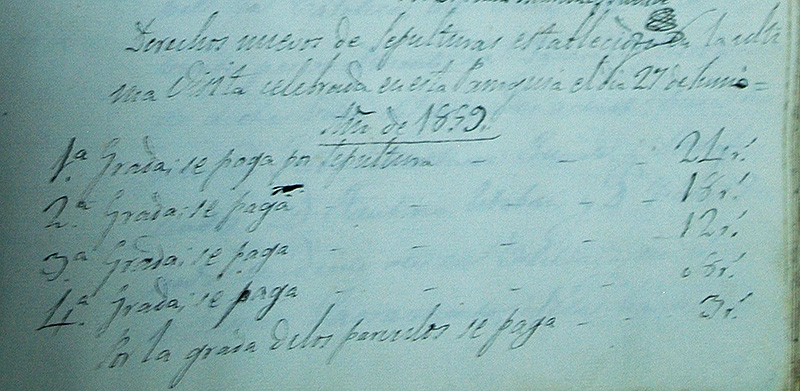 Derechos nuevos de sepulturas establecidos en la ulti
ma Visita celebrada en esta Parroquia el dia 27 de Junio =
Año de 1859.
1.ª Grada; se paga por sepultura - - - 21 r.ˢ
2.ª Grada; se paga - - - 18 r.ˢ
3.ª Grada; se paga - - - 12 r.ˢ
4.ª Grada; se paga - - - 08 r.ˢ
Por la grada de los parvulos se paga - - 3 r.ˢ